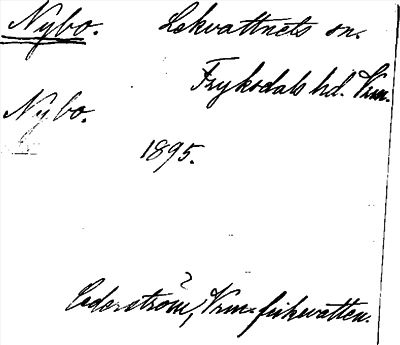 Nybo. Lekvattnets sn.
Fryksdals hd. Vrm.
Nybo.
1895.
?
Cederström, Vrm. fiskevatten.